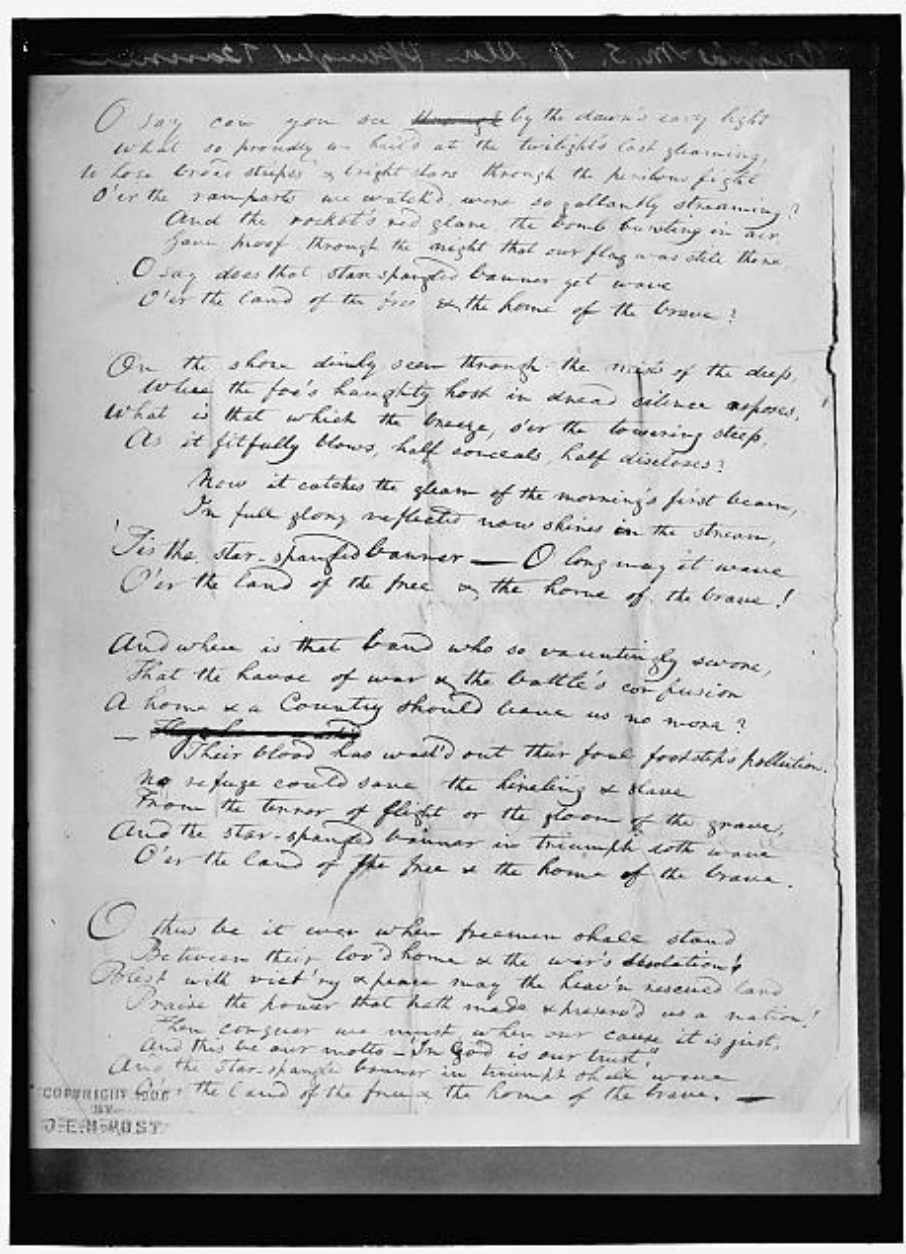 Original M.S. of Star Spangled Banner
O say can you see through by the dawn's early light
What so proudly we hail'd at the twilight's last gleaming,
Whose broad stripes & bright stars through the perilous fight
O'er the ramparts we watch'd, were so gallantly streaming?
And the rocket's red glare, the bomb bursting in air,
Gave proof through the night that our flag was still there,
O say does that star-spangled banner yet wave
O'er the land of the free & the home of the brave?
On the shore dimly seen through the mists of the deep,
Where the foe's haughty host in dread silence reposes,
What is that which the breeze, o'er the towering steep,
As it fitfully blows, half conceals, half discloses?
Now it catches the gleam of the morning's first beam,
In full glory reflected now shines in the stream,
'Tis the star-spangled banner — O long may it wave
O'er the land of the free & the home of the brave!
And where is that band who so vauntingly swore,
That the havoc of war & the battle's confusion
A home & a Country should leave us no more?
—
Their blood has wash'd out their foul footstep's pollution.
No refuge could save the hireling & slave
From the terror of flight or the gloom of the grave,
And the star-spangled banner in triumph doth wave
O'er the land of the free & the home of the brave.
O thus be it ever when freemen shall stand
Between their lov'd home & the war's desolation!
Blest with vict'ry & peace may the heav'n rescued land
Praise the power that hath made & preserv'd us a nation!
Then conquer we must, when our cause it is just,
And this be our motto – "In God is our trust"
And the star-spangled banner in triumph shall wave
O'er the land of the free & the home of the brave. —
COPYRIGHT
BY